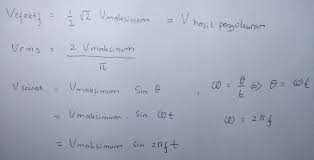 Vefektif = 1/2 √2 Vmaksimum = V hasil pengukuran
Vrms = 2 Vmaksimum / π
Vsesaat = Vmaksimum sin θ , ω = θ/t ⇔ θ = ωt
= Vmaksimum . sin ωt ω = 2πf
= Vmaksimum sin 2πf t